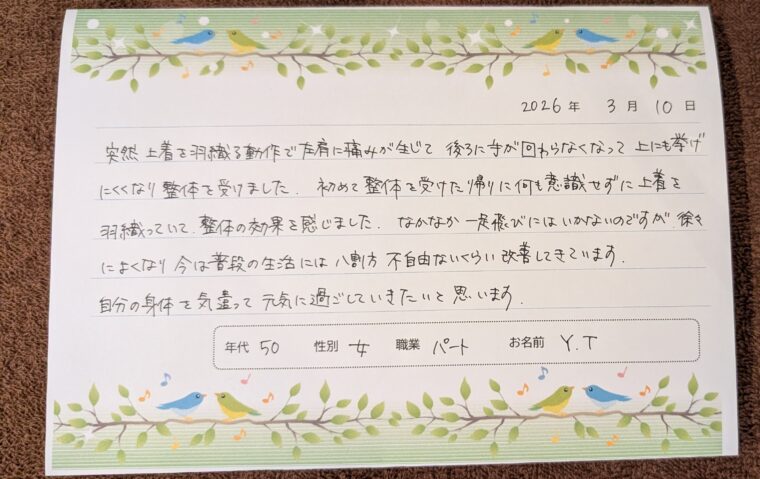 2026年 3月 10日
突然 上着を羽織る動作で左肩に痛みが生じて 後ろに手が回わらなくなって 上にも挙げ
にくくなり 整体を受けました. 初めて整体を受けた帰りに何も意識せずに上着を
羽織っていて、整体の効果を感じました. なかなか 一足飛びにはいかないのですが、徐々
によくなり 今は普段の生活には 八割方 不自由ないくらい改善してきています.
自分の身体を気遣って 元気に過ごしていきたいと思います.
年代 50 性別 女 職業 パート お名前 Y.T